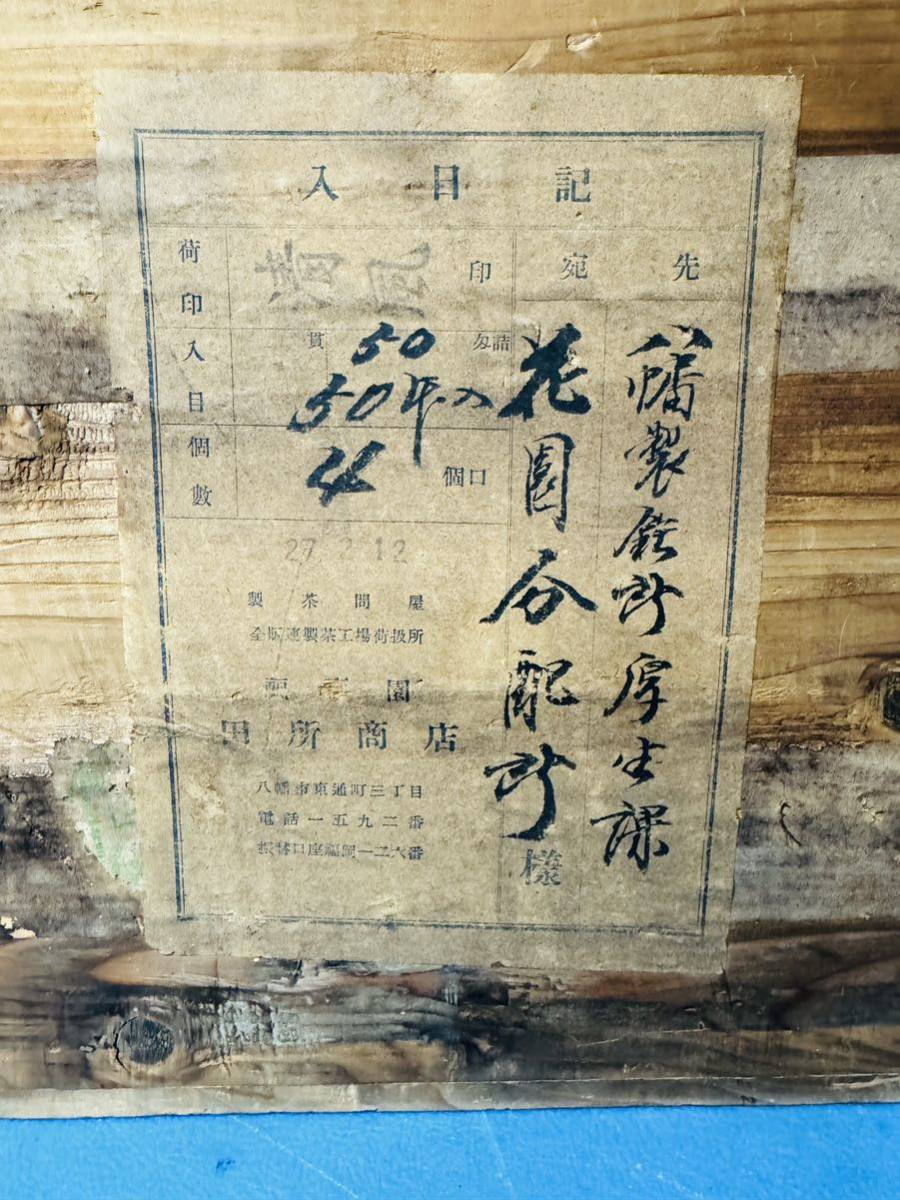 入日記
宛先
八幡製鉄所厚生課
花園分配所
様
荷印
印
入目
貫 50 匁詰
50 入
個數
4 個口
27 2 12
製茶問屋
製茶工場荷扱所
園
田所商店
八幡市東通町三丁目
電話一五九二番
振替口座福岡一二六番